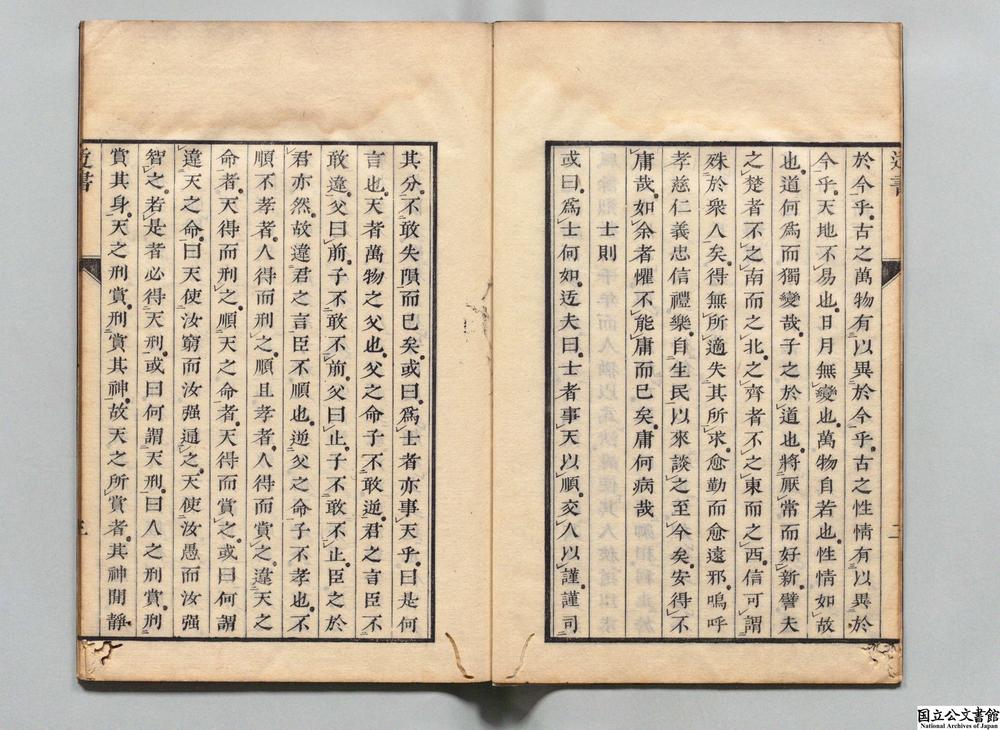 於今乎古之萬物有以異於今乎古之性情有以異於
今乎天地不易也日月無變也萬物自若也性情如故
也道何爲而獨變哉子之於道也將厭常而好新譬夫
之楚者不之南而之北之齊者不之東而之西信可謂
殊於衆人矣得無所適失其所求愈勤而愈遠邪嗚呼
孝慈仁義忠信禮樂自生民以來談之至今矣安得不
庸哉如余者懼不能庸而已矣庸何病哉
士則
或曰爲士何如迃夫曰士者事天以順交人以謹謹司
其分不敢失隕而已矣或曰爲士者亦事天乎曰是何
言也天者萬物之父也父之命子不敢逆君之言臣不
敢違父曰前子不敢不前父曰止子不敢不止臣之於
君亦然故違君之言臣不順也逆父之命子不孝也不
順不孝者人得而刑之順且孝者人得而賞之違天之
命者天得而刑之順天之命者天得而賞之或曰何謂
違天之命曰天使汝窮而汝强通之天使汝愚而汝强
智之若是者必得天刑或曰何謂天刑曰人之刑賞刑
賞其身天之刑賞刑賞其神故天之所賞者其神閒靜
迃書
三
国立公文書館
National Archives of Japan